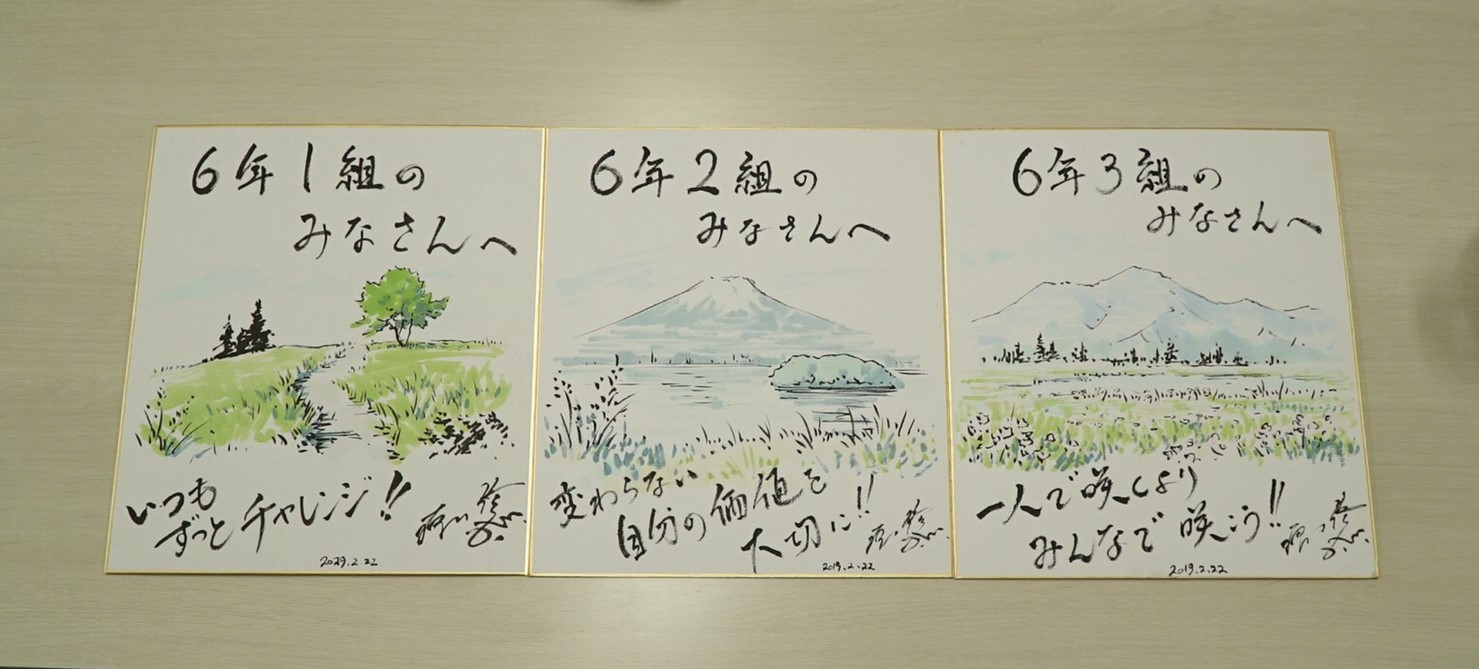 6年1組の
みなさんへ
いつも
ずっとチャレンジ!!
2029.2.22
6年2組の
みなさんへ
変わらない
自分の価値を
大切に!!
2019.2.22
6年3組の
みなさんへ
一人で咲くより
みんなで咲こう!!
2019.2.22